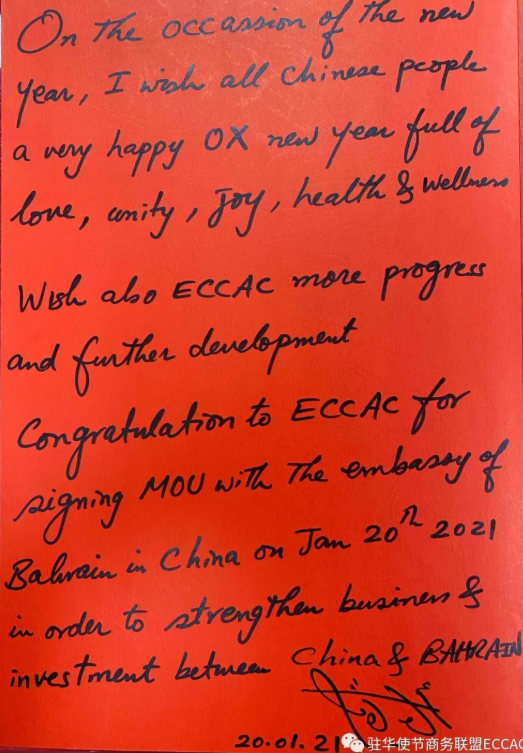 On the occassion of the new
year, I wish all Chinese people
a very happy OX new year full of
love, unity, joy, health & wellness
Wish also ECCAC more progress
and further development
Congratulation to ECCAC for
signing MOU with the embassy of
Bahrain in China on Jan 20th 2021
in order to strengthen business &
investment between China & BAHRAIN
20.01.21
驻华使节商务联盟ECCAC